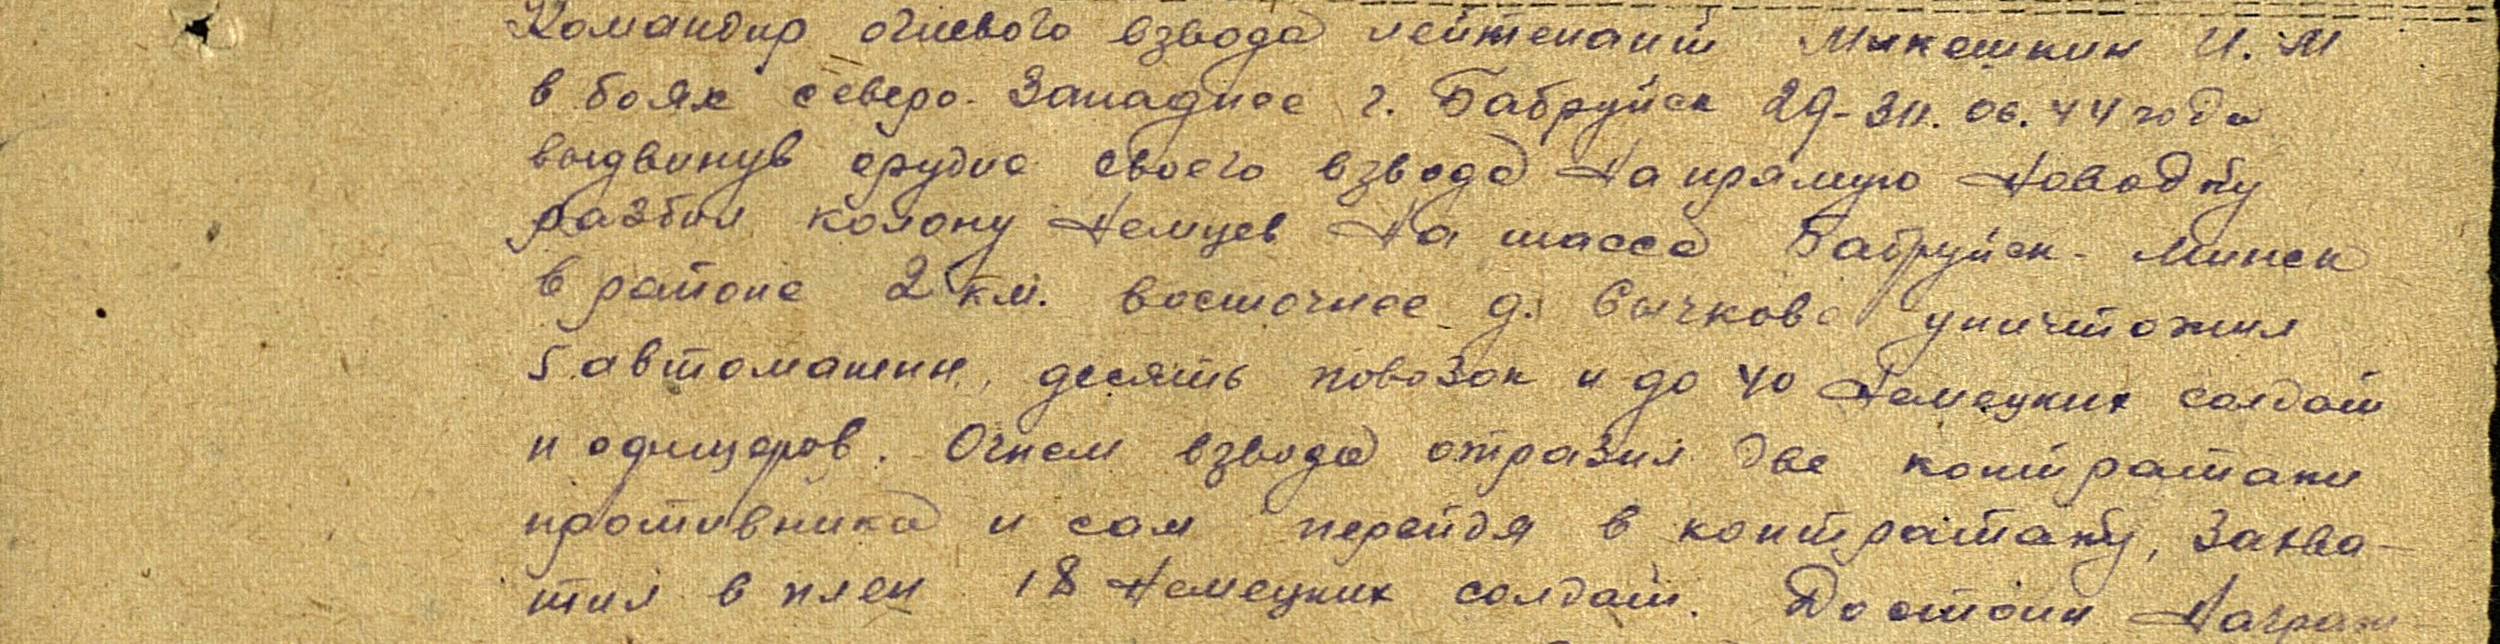 Командир огневого взвода лейтенант Микешкин И. М
в боях северо-Западнее г. Бабруйск 29-30.06.44 года
выдвинув орудие своего взвода На прямую Наводку
разбил колону Немцев На шоссе Бабруйск-Минск
в районе 2 км. восточнее д. Сычково уничтожил
5 автомашин, десять повозок и до 40 Немецких солдат
и офицеров. Огнем взвода отразил две контратаки
противника и сам перейдя в контратаку, Захва-
тил в плен 18 Немецких солдат. Достоин Награж-